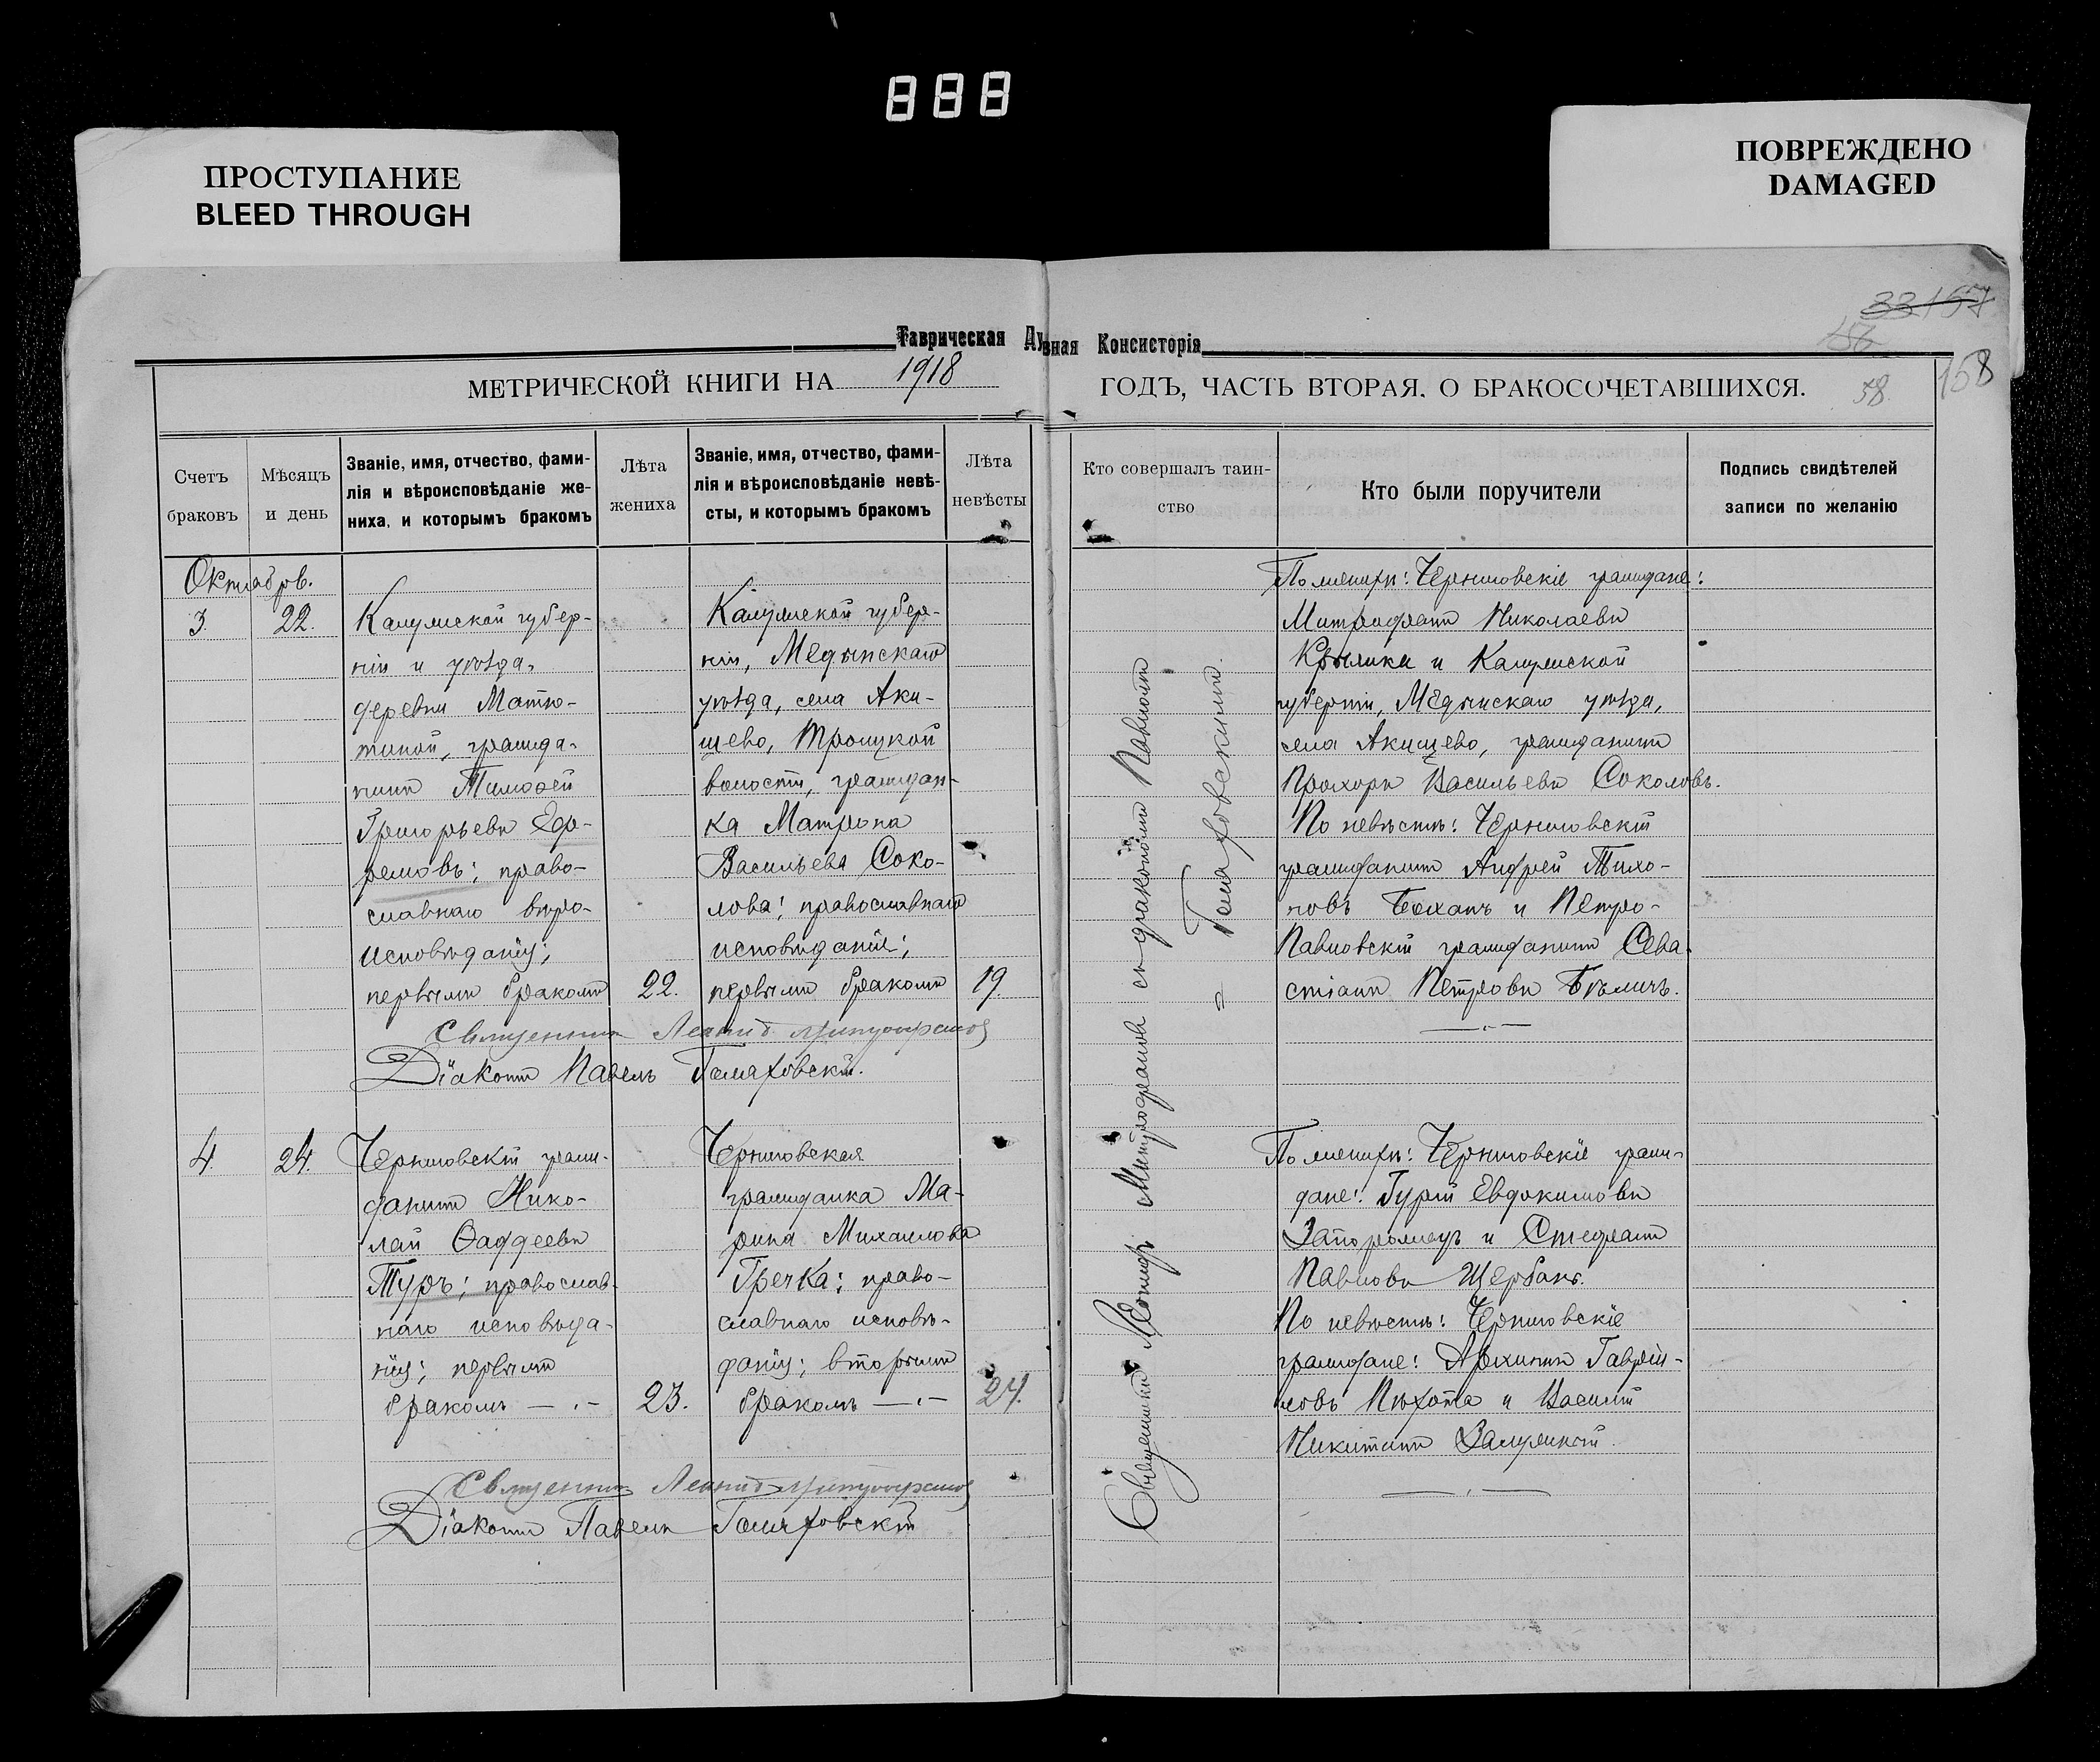 888
ПРОСТУПАНИЕ
BLEED THROUGH
ПОВРЕЖДЕНО
DAMAGED
33 157
156
158
58
Таврическая Духовная Консисторія
МЕТРИЧЕСКОЙ КНИГИ НА 1918 ГОДЪ, ЧАСТЬ ВТОРАЯ, О БРАКОСОЧЕТАВШИХСЯ.
Счетъ
браковъ
Мѣсяцъ
и день
Званіе, имя, отчество, фами-
лія и вѣроисповѣданіе же-
ниха, и которымъ бракомъ
Лѣта
жениха
Званіе, имя, отчество, фами-
лія и вѣроисповѣданіе невѣ-
сты, и которымъ бракомъ
Лѣта
невѣсты
Кто совершалъ таин-
ство
Кто были поручители
Подпись свидѣтелей
записи по желанію
Октябрь.
3.
22.
Калужской губер-
ніи и уѣзда,
деревни Матю-
ниной, гражда-
нинъ Тимоѳей
Григорьевъ Еф-
ремовъ; право-
славнаго вѣро-
исповѣданія;
первымъ бракомъ
22.
Калужской губер-
ніи, Медынскаго
уѣзда, села Аки-
щево, Троицкой
волости, граждан-
ка Матрона
Васильева Соко-
лова; православнаго
исповѣданія;
первымъ бракомъ
19.
Священникъ Леонидъ Митрофановъ
Діаконъ Павелъ Галаховскій.
Священникъ Леонидъ Митрофановъ съ діакономъ Павломъ
Галаховскимъ.
По женихѣ: Черниговскіе граждане:
Митрофанъ Николаевъ
Крылик и Калужской
губерніи, Медынскаго уѣзда,
села Акищево, гражданинъ
Прохоръ Васильевъ Соколовъ.
По невѣстѣ: Черниговскій
гражданинъ Андрей Тихо-
новъ Бохан и Петро-
Павловскій гражданинъ Сева-
стіанъ Петровъ Бѣличъ.
4.
24.
Черниговскій граж-
данинъ Нико-
лай Ѳаддеевъ
Туръ; православ-
наго исповѣда-
нія; первымъ
бракомъ
23.
Черниговская
гражданка Ма-
рина Михаилова
Гречка; право-
славнаго исповѣ-
данія; вторымъ
бракомъ
24.
Священникъ Леонидъ Митрофановъ
Діаконъ Павелъ Галаховскій
По женихѣ: Черниговскіе граж-
дане: Гурій Евдокимовъ
Запорожецъ и Стефанъ
Павловъ Щербакъ.
По невѣстѣ: Черниговскіе
граждане: Архипъ Гаврі-
ловъ Пѣхота и Василій
Никитинъ